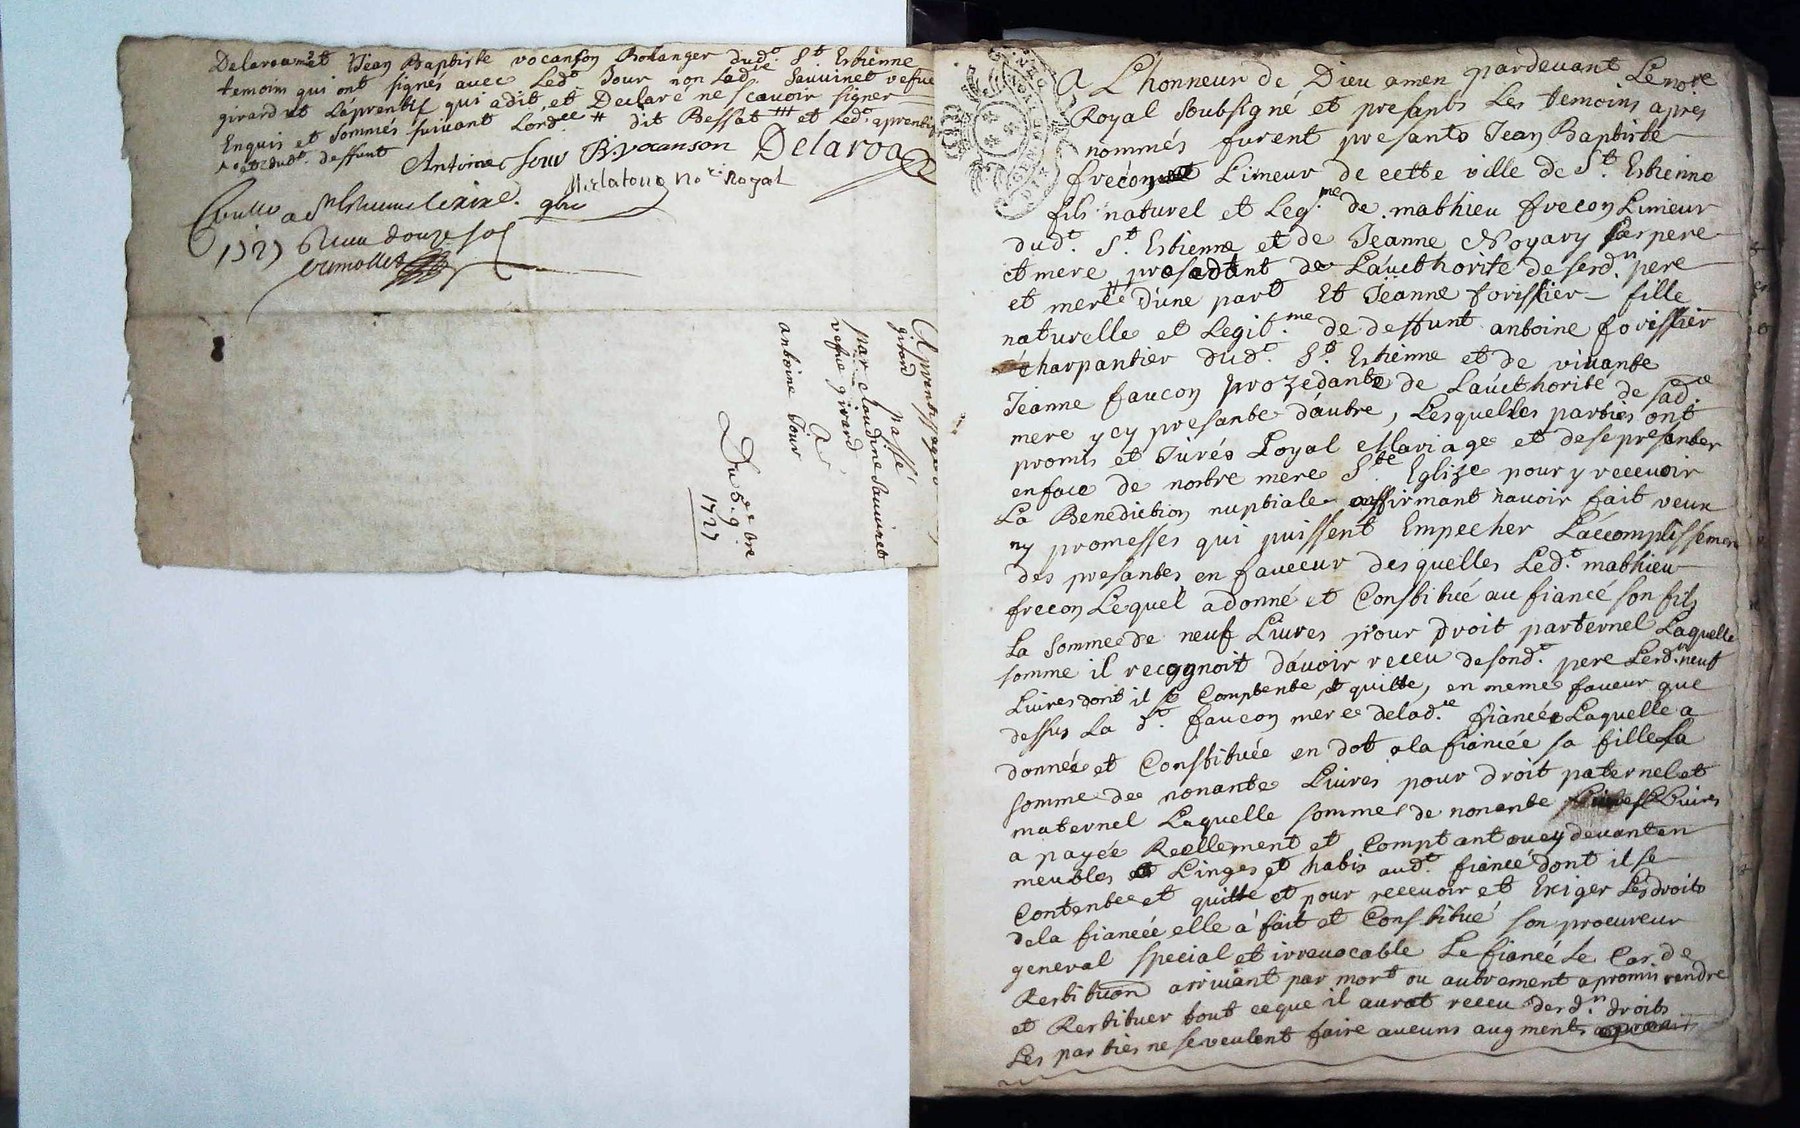 Delaroa et Jean Baptiste vocanson Boulanger dud.t S.t Estienne
temoins qui ont signés avec Led.t Jour non Lad.e Sauvinet vefve
girard et Laprentif qui adit et Declaré ne scavoir signer
Enquis et sommés suivant Lord.ce # dit Bessat ### et Led.t aprentif
dud.t deffunt
Antoine Jour B. vocanson Delaroa
Mirlatour no.re Royal
Controllé a S.t Estienne
1727 Receu douze sols
Aprentissage
girard
passé
par claudine Sauvinet
vefve girard
A
antoine Jour
Du 5.e 9.bre
1727
A L'honneur de Dieu amen pardevant Le no.re
Royal Soubsigné et presants Les temoins apres
nommés furent presants Jean Baptiste
frécon Limeur de cette ville de S.t Estienne
fils naturel et Leg.me de mathieu frecon Limeur
dud.t S.t Estienne et de Jeanne Noyary ses pere
et mere prosedant de Lauthorité de serd.n pere
et mere d'une part Et Jeanne forissier fille
naturelle et Legit.me de deffunt antoine forissier
charpantier dud.t S.t Estienne et de vivante
Jeanne faucon prozedante de Lauthorité de sad.ce
mere ycy presante d'autre, Lesquelles parties ont
promis et Jurés Loyal Mariage et desepresanter
enface de nostre mere S.te Eglize pour y recevoir
La Benediction nuptiale affirmant navoir fait veux
ny promesses qui puissent Empecher Laccomplissement
des presantes en faveeur desquelles Led.t mathieu
frecon Lequel adonné et Constitué au fiancé son fils
La somme de neuf Livres pour droit parternel Laquelle
somme il recognoit davoir receu desond.t pere Lerd.n neuf
Livres dont il se Comptente et quitte, en meme faveur que
dessus La d.t faucon mere delad.te fiancée Laquelle a
donnée et Constituée en dot ala fiancée sa fille La
somme de nonante Livres pour droit paternel et
maternel Laquelle somme de nonante Livres
a payée Reellement et Comptant ou cy devant en
meubles Linges et habis aud.t fiancé dont il se
Contentee et quitte et pour recevoir et Exiger Lesdroits
dela fiancée elle à fait et Constitué son procureur
general special et irrevocable Le fiancé Le Cas de
Restituon arrivant par mort ou autrement apromis rendre
et Restituer tout ceque il aurat receu desd.n droits
Les parties ne se veulent faire aucuns augments